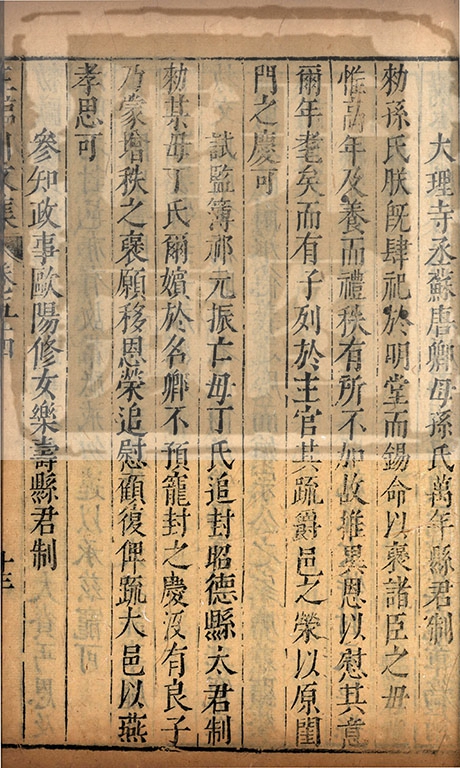 大理寺丞蘇唐卿母孫氏萬年縣君制
勑孫氏朕旣肆祀於明堂而錫命以褒諸臣之母
惟萬年及養而禮秩有所不加故推異恩以慰其意
爾年耄矣而有子列於王官其疏爵邑之榮以原閨
門之慶可
試監簿祁元振亡母丁氏追封昭德縣太君制
勑某母丁氏爾嬪於名卿不預寵封之慶沒有良子
乃蒙增秩之褒願移恩榮追慰顧復俾疏大邑以燕
孝思可
參知政事歐陽修女樂壽縣君制
王臨川文集 卷五十四 十三